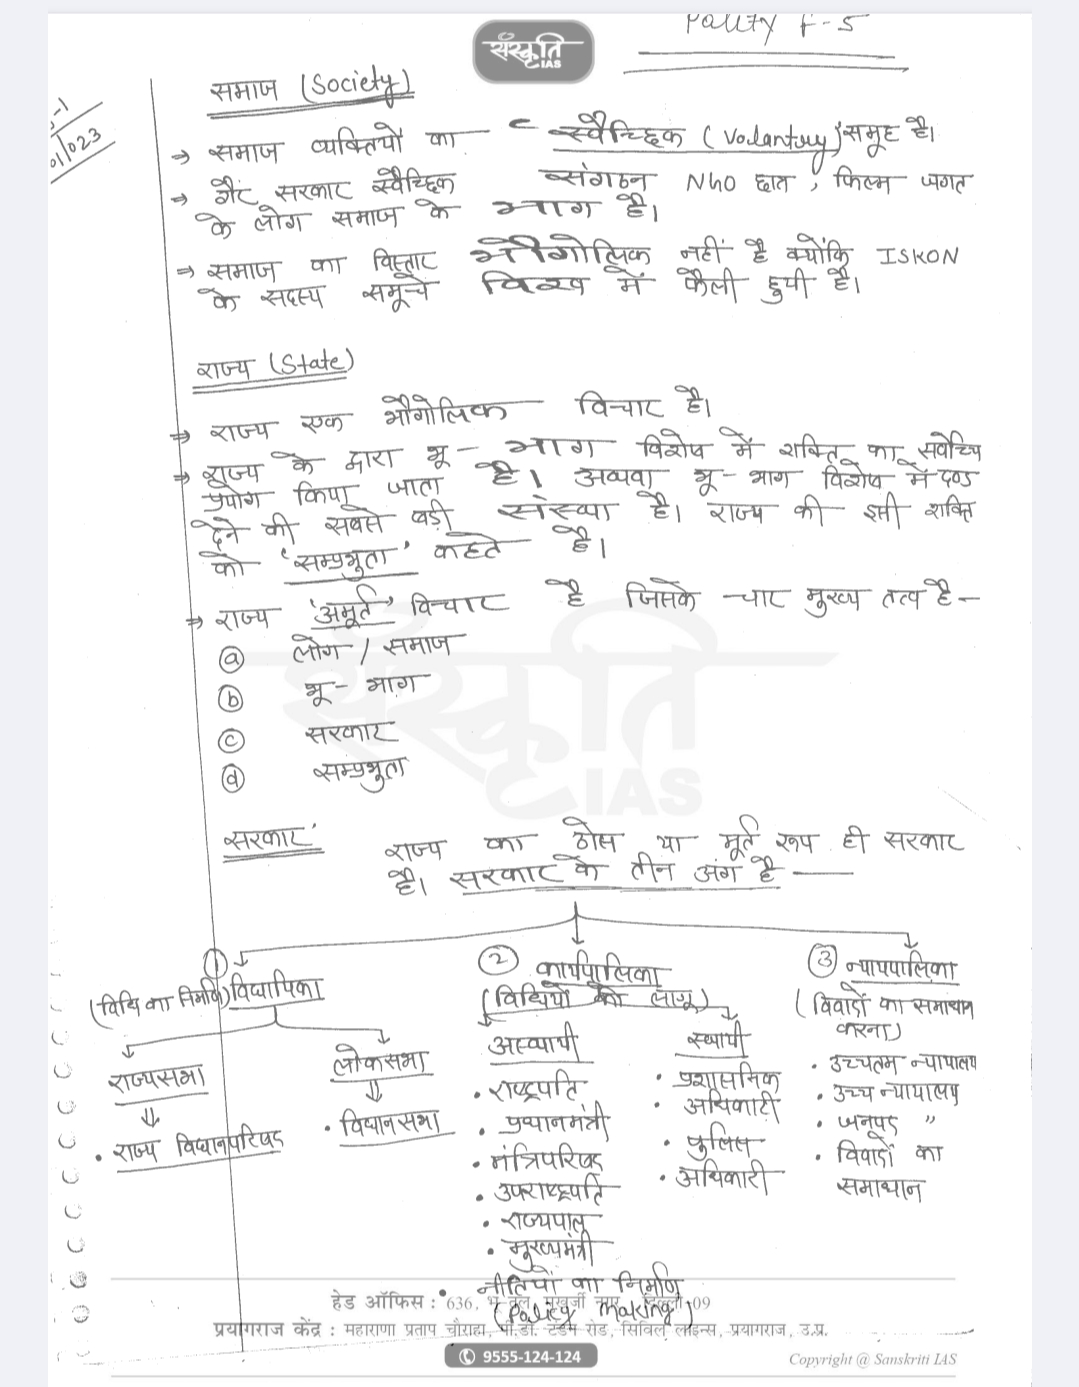 Polity F-5
संस्कृति
IAS
समाज (Society)
→ समाज व्यक्तियों का स्वैच्छिक (Voluntary) समूह है।
→ गैर सरकार स्वैच्छिक संगठन NGO छात्र, फिल्म जगत
के लोग समाज के भाग है।
→ समाज का विस्तार भौगोलिक नहीं है क्योंकि ISKON
के सदस्य समूचे विश्व में फैली हुयी है।
राज्य (State)
→ राज्य एक भौगोलिक विचार है।
→ राज्य के द्वारा भू-भाग विशेष में शक्ति का सर्वोच्च
प्रयोग किया जाता है। अथवा भू-भाग विशेष में दण्ड
देने की सबसे बड़ी संस्था है। राज्य की इसी शक्ति
को 'सम्प्रभुता' कहते है।
→ राज्य 'अमूर्त' विचार है जिसके चार मुख्य तत्व है -
(a) लोग / समाज
(b) भू-भाग
(c) सरकार
(d) सम्प्रभुता
सरकार राज्य का ठोस या मूर्त रूप ही सरकार
है। सरकार के तीन अंग है —
① विधायिका
(विधि का निर्माण)
② कार्यपालिका
(विधियों को लागू)
③ न्यायपालिका
(विवादों का समाधान
करना)
राज्यसभा
• राज्य विधानपरिषद
लोकसभा
• विधानसभा
अस्थायी
• राष्ट्रपति
• प्रधानमंत्री
• मंत्रिपरिषद
• उपराष्ट्रपति
• राज्यपाल
• मुख्यमंत्री
• नीतियों का निर्माण
(Policy making)
स्थायी
• प्रशासनिक
• अधिकारी
• पुलिस
• अधिकारी
• उच्चतम न्यायालय
• उच्च न्यायालय
• जनपद "
• विवादों का
समाधान
हेड ऑफिस : 636, भू तल, मुखर्जी नगर, दिल्ली-09
प्रयागराज केंद्र : महाराणा प्रताप चौराहा, पी.डी. टंडन रोड, सिविल लाइन्स, प्रयागराज, उ.प्र.
9555-124-124
Copyright @ Sanskriti IAS